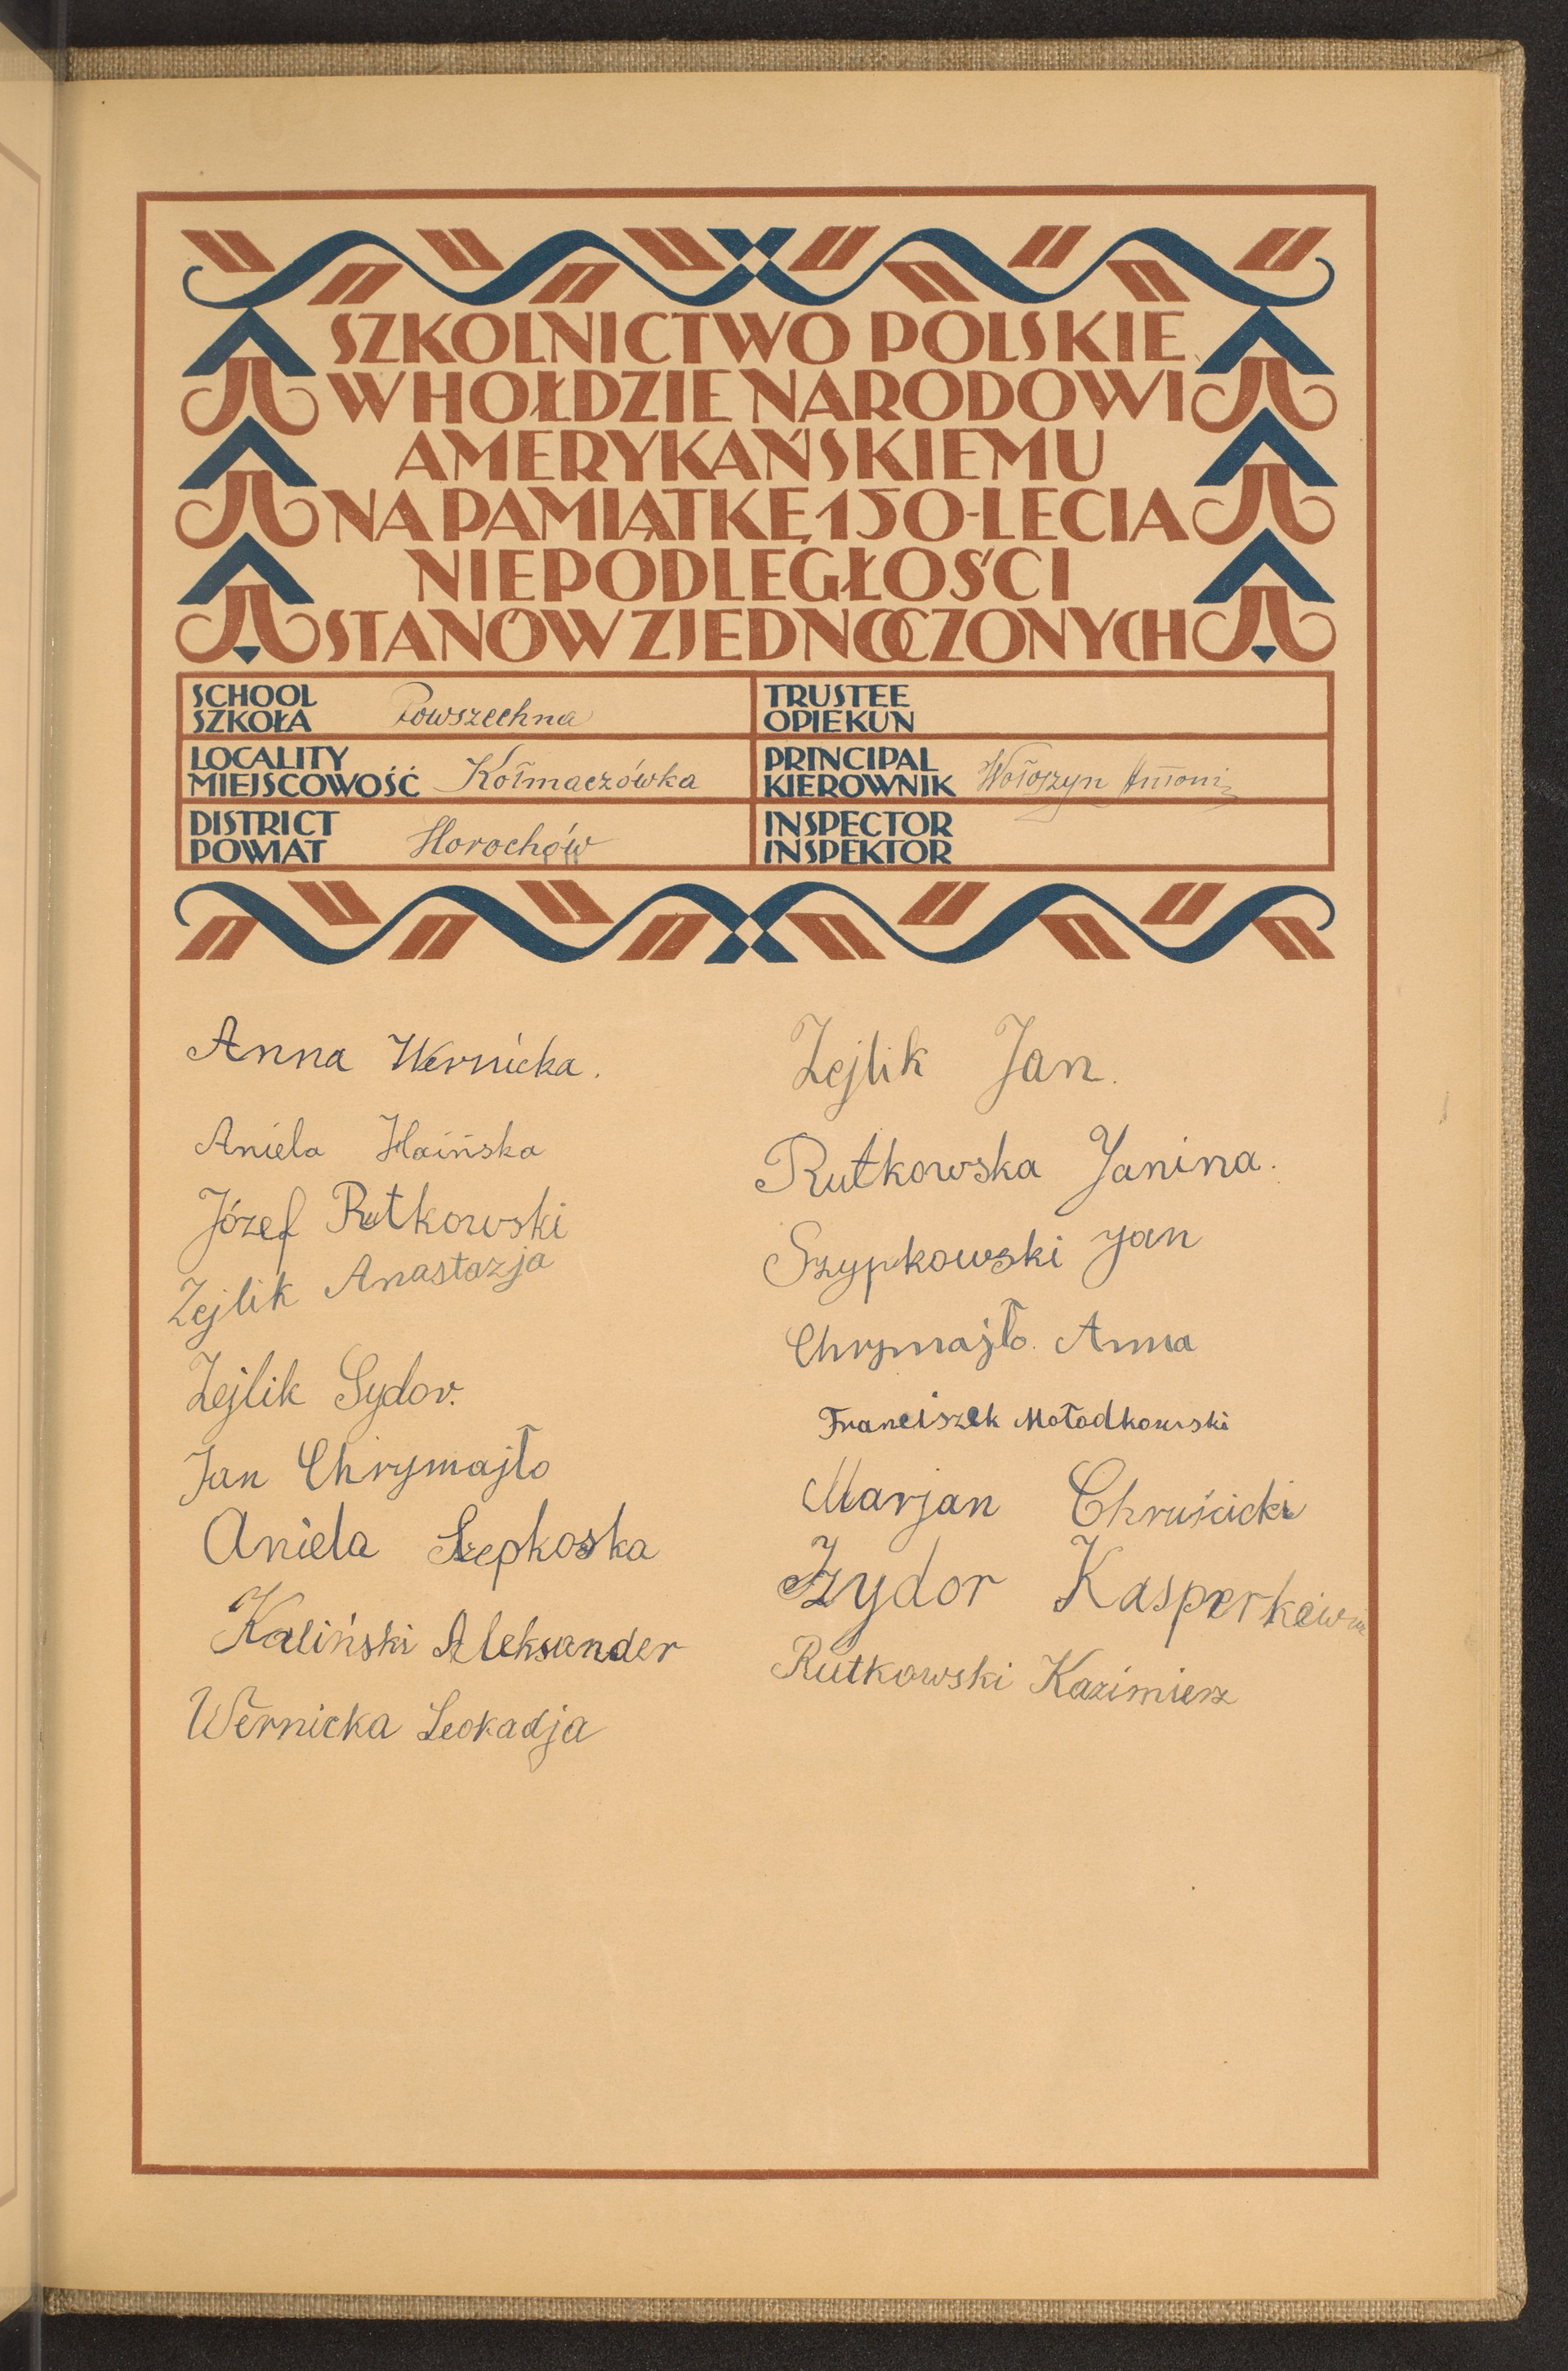 SZKOLNICTWO POLSKIE
W HOŁDZIE NARODOWI
AMERYKAŃSKIEMU
NA PAMIĄTKĘ 150-LECIA
NIEPODLEGŁOŚCI
STANÓW ZJEDNOCZONYCH
SCHOOL
SZKOŁA Powszechna
TRUSTEE
OPIEKUN
LOCALITY
MIEJSCOWOŚĆ Kołmaczówka
PRINCIPAL
KIEROWNIK Wołoszyn Antoni
DISTRICT
POWIAT Horochów
INSPECTOR
INSPEKTOR
Anna Wernicka.
Aniela Haińska
Józef Rutkowski
Zejlik Anastazja
Zejlik Sydor.
Jan Chrymajło
Aniela Szepkoska
Kaliński Aleksander
Wernicka Leokadja
Zejlik Jan.
Rutkowska Janina.
Szypkowski Jan
Chrymajło. Anna
Franciszek Mołodkowski
Marjan Chruścicki
Izydor
Rutkowski Kazimierz